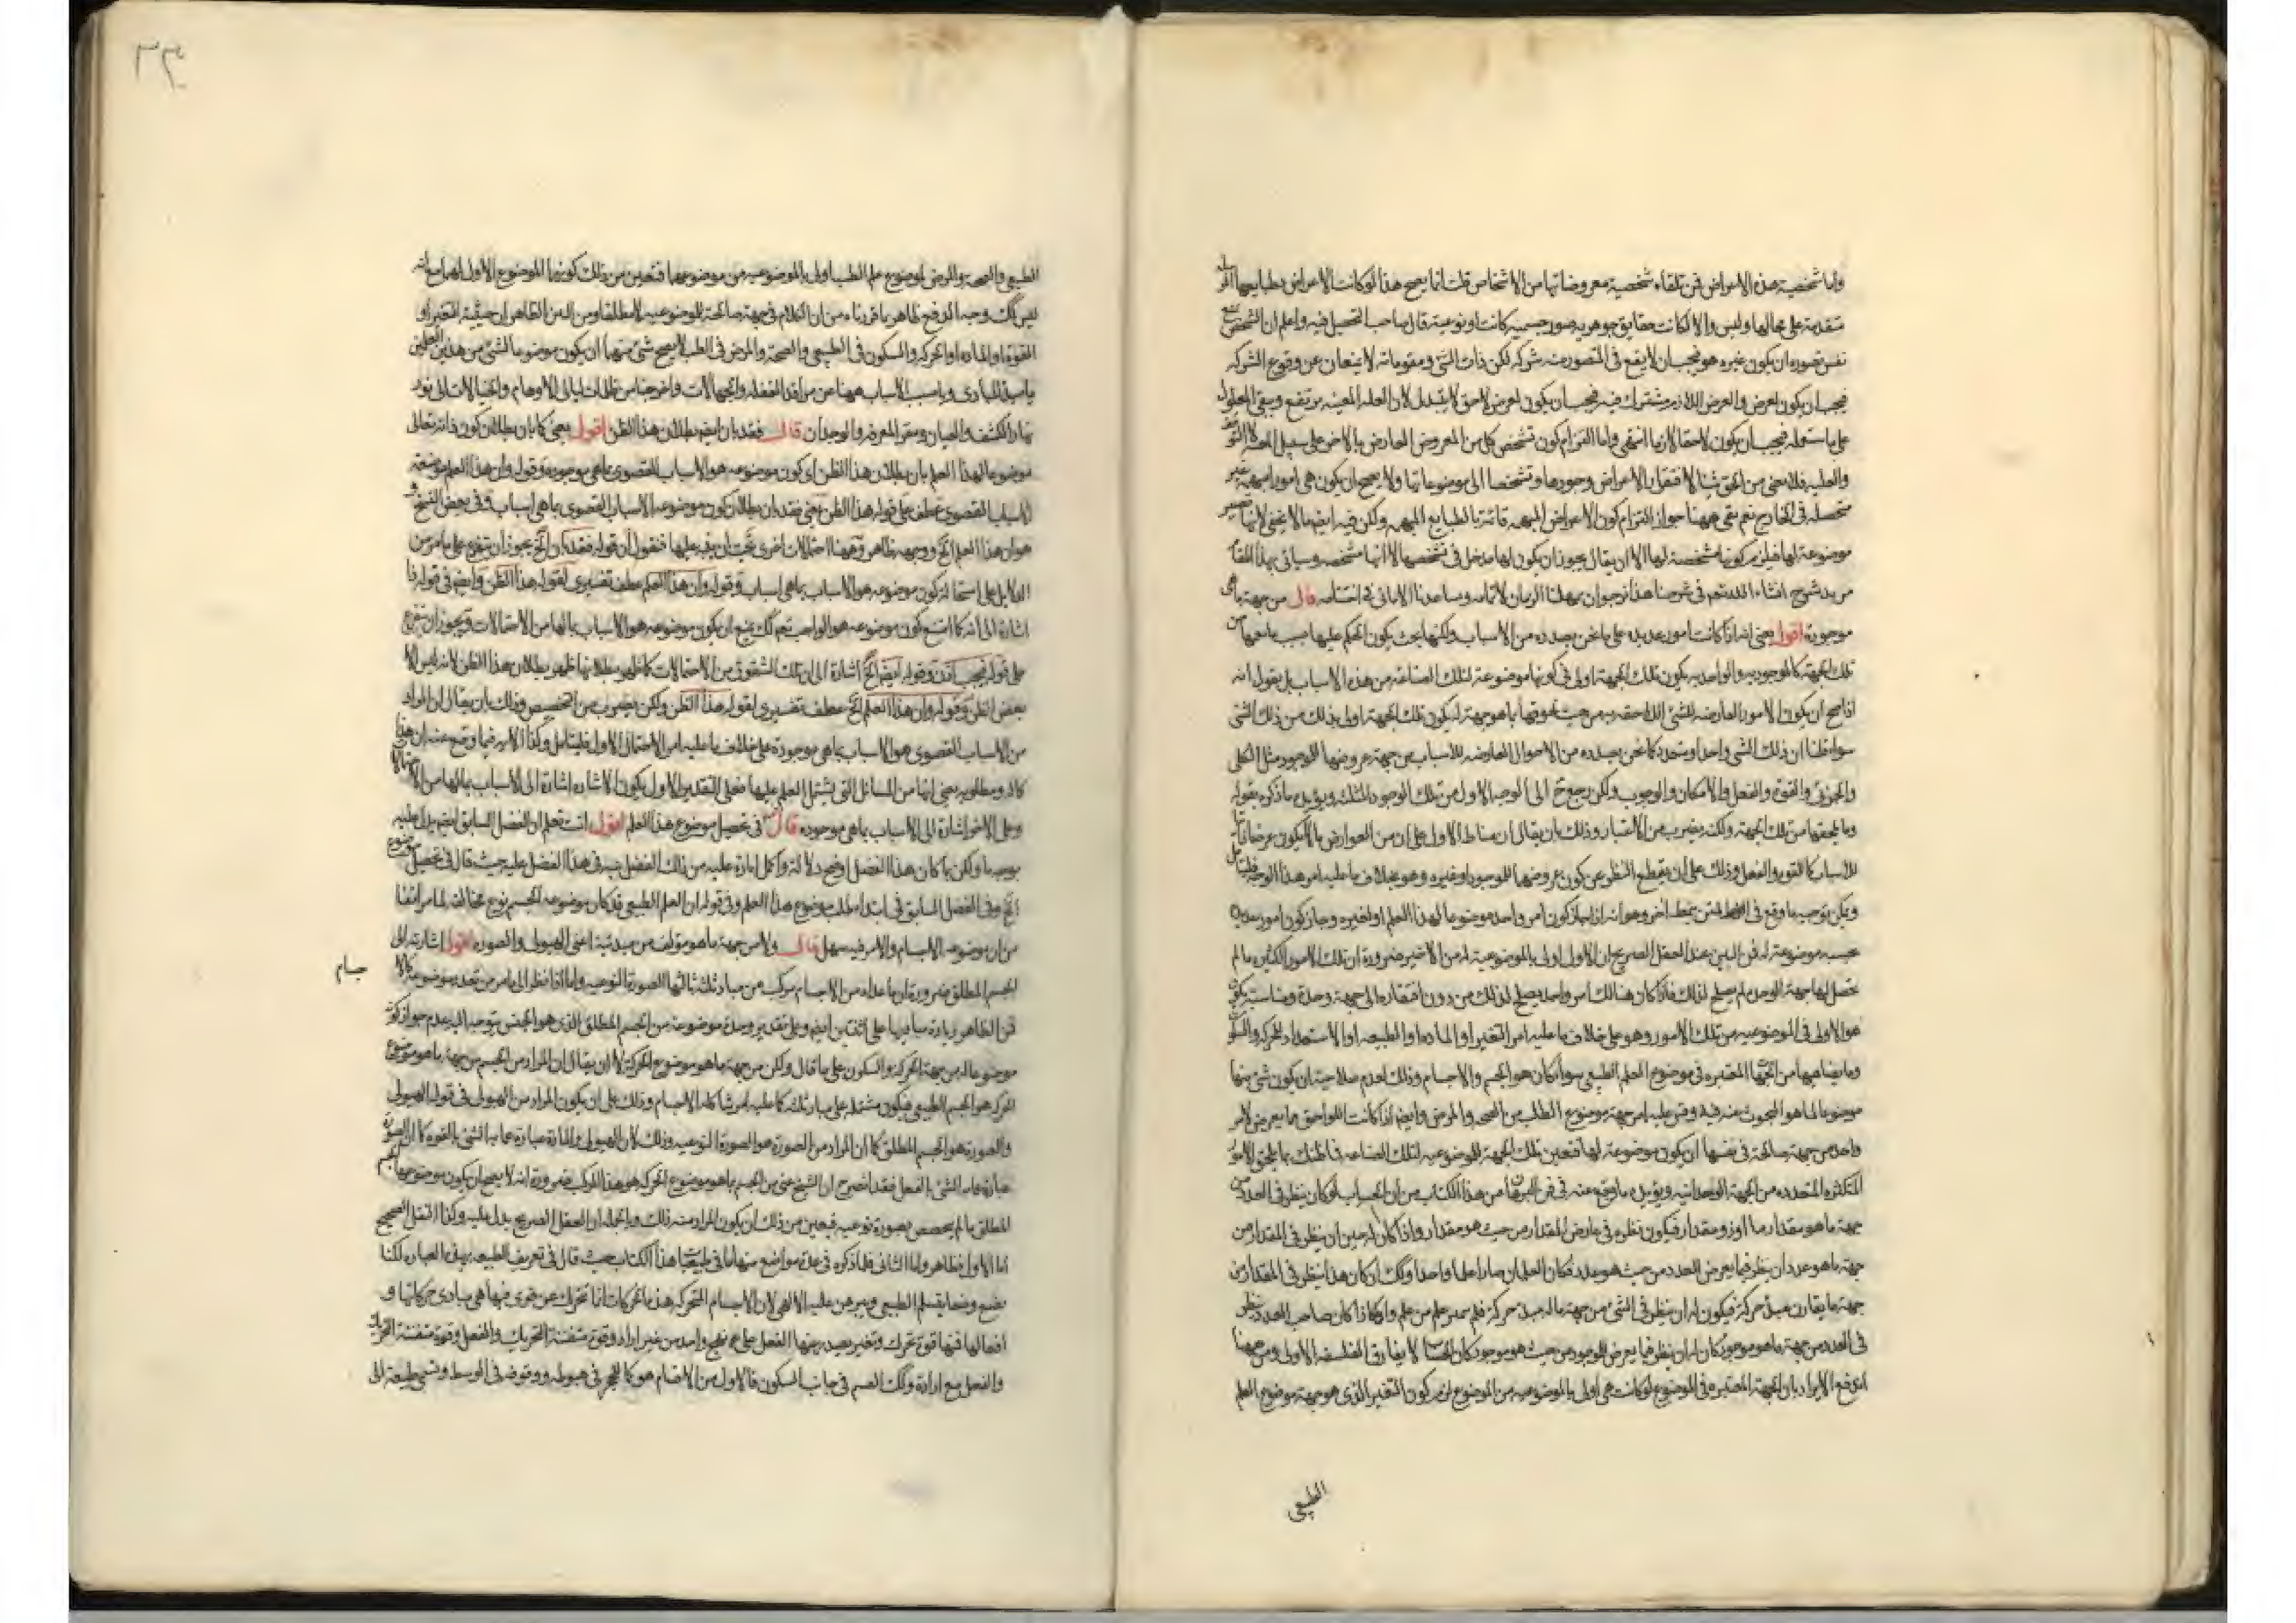 واما شخصية هذه الاعراض فمن تلقاء شخصية معروضاتها من الاشخاص قلت انما يصح هذا لو كانت الاعراض بطبايعها
متقدمة على محالها وليس والا لكانت حقايق جوهريه صور جسميه كانت او نوعية قال صاحب التحصيل فيه واعلم ان الشخص
نفس تصوره ان يكون غيره هو فيجب ان لا يقع في المتصور منه شركه لكن ذات الشئ ومقوماته لا يمنعان عن وقوع الشركه
فيجب ان يكون لعرض والعرض اللازم مشترك فيه فيجب ان يكون لعرض لاحق لا يتبدل لان العله المعينه يرتفع ويبقى المعلول
على ما ستعلمه فيجب ان يكون لاحقا لازما انتهى واما التزام كون تشخص كل من المعروض العارض بالاخر على سبيل
والعليه فلا معنى من الحق شيئا لافتقار الاعراض وجودها وتشخصها الى موضوعاتها ولا يصح ان يكون هي امور مبهمه غير
متحصله في الخارج نعم بقي ههنا جواز التزام كون الاعراض المبهمه قائمة بالطبايع المبهمه ولكن فيه ايضا ما لا يخفى لانها
موضوعة لها فيلزم كونها مشخصة لها الا ان يقال يجوز ان يكون لها مدخل في تشخصها لا انها مشخصه وسياتي بهذا المقام
مزيد شرح انشاء الله تعم في شرحنا هذا نرجو ان يمهلنا الزمان لاتمامه وساعدنا الاماني في اختتامه قال من جهة ما هي
موجودة اقول يعني انه اذا كانت امور عديده على ما نحن بصدده من الاسباب ولكنها بحيث يكون الحكم عليها حسب ما معها من
تلك الجهة كالموجوديه والواحديه يكون تلك الجهة اولى في كونها موضوعة لتلك الصناعة من هذه الاسباب بل يقول انه
اذا صح ان يكون الامور العارضه للشئ اللاحقه به من حيث لحوقها بما هو جهة له يكون تلك الجهة اولى بذلك من ذلك الشئ
سواء قلنا ان ذلك الشئ واحد او متعدد كما نحن بصدده من الاحوال العارضه للاسباب من جهة عروضها للموجود مثل الكلى
والجزئى والقوة والفعل والامكان والوجوب ولكن رجوع ح الى الوجه الاول من تلك الوجوه الثلثه ويؤيده ما ذكره بقوله
وما يلحقها من تلك الجهة ولكنه بضرب من الاعتبار وذلك بان يقال ان مناط الاول على ان من العوارض ما لا يكون عرضا ذاتيا
للاسباب كالقوه والفعل وذلك على ان يقطع النظر عن كون عروضها للموجود او غيره وهو بخلاف ما عليه امر هذا الوجه فليتامل
ويمكن توجيه ما وقع في المتن بنمط اخر وهو انه اذا جاز كون امر واحد موضوعا لهذا العلم او لغيره وجاز كون امور عديدة
بحسبه موضوعة له فمن البين عند العقل الصريح ان الاول اولى بالموضوعية له من الاخير ضرورة ان تلك الامور الكثيره ما لم
تحصل لها جهة الوحده لم تصلح لذلك فاذا كان هنالك امر واحد يصلح لذلك من دون افتقاره الى جهة وحدة ومناسبة يكون
هو الاولى في الموضوعيه من تلك الامور وهو على خلاف ما عليه امر التغير او الماده او الطبيعه او الاستعداد للحركه والسكون
وما يضاهيها من الجهات المعتبره في موضوع العلم الطبيعي سواء كان هو الجسم والاجسام وذلك لعدم صلاحية ان يكون شئ منها
موضوعا لما هو المبحوث عنه فيه وقس عليه امر جهة موضوع الطب من الصحه والمرض وايضا اذا كانت اللواحق ما يعرض لامر
واحد من جهة صالحة في نفسها ان يكون موضوعة لها فتعين تلك الجهة للموضوعيه لتلك الصناعه فما ظنك بما يلحق الامور
المتكثره المتعدده من الجهة الوحدانيه ويؤيده ما وقع عنه في فن البرهان من هذا الكتاب من ان الحساب لو كان ينظر في العدد من
جهة ما هو مقدار ما او ذو مقدار فيكون نظره في عارض المقدار من حيث هو مقدار واذا كان له حين ان ينظر في المقدار من
جهة ما هو عدد ان ينظر فيما يعرض العدد من حيث هو عدد فكان العلمان صارا علما واحدا وكك ان كان هذا ينظر في المقدار من
جهة ما يقارن مبدئ حركة فيكون له ان ينظر في الشئ من جهة ما له مبدئ حركة فلم يتميز علم من علم واذا كان صاحب العدد ينظر
في العدد من جهة ما هو موجود كان له ان ينظر فيما يعرض للموجود من حيث هو موجود كان الحساب لا يفارق الفلسفه الاولى ومن ههنا
اندفع الايراد بان الجهة المعتبره في الموضوع لو كانت هي اولى بالموضوعيه من الموضوع لزم كون التغير الذي هو جهة موضوع العلم
الطبيعي
٣٣
الطبيعي والصحة والمرض لموضوع علم الطب اولى بالموضوعيه من موضوعهما فتعين من ذلك كونهما الموضوع الاول لهما مع انه
ليس كك وجه الدفع ظاهر بما قررناه من ان الكلام في جهة صالحة للموضوعيه لا مطلقا ومن البين الظاهر ان حيثية التغير او
القوة او الماده او الحركه والسكون في الطبيعي والصحة والمرض في الطب لا يصح شئ منها ان يكون موضوعا لشئ من هذين العلمين
يا مبدئ المبادي ويا مسبب الاسباب هبنا من مراقد الغفله والجهالات واخرجنا من ظلمات ليالي الاوهام والخيالات الى نور
نهار الكشف والعيان ومقر المعرفه والوجدان قال فقد بان ايضا بطلان هذا الظن اقول يعني كما بان بطلان كون ذاته تعالى
موضوعا لهذا العلم بان بطلان هذا الظن اى كون موضوعه هو الاسباب القصوى بما هي موجوده وقوله وان هذا العلم موضوعه
الاسباب القصوى عطف على قوله هذا الظن يعني فقد بان بطلان كون موضوعه الاسباب القصوى بما هي اسباب وفي بعض النسخ
هو ان هذا العلم الخ ووجهه ظاهر وههنا احتمالات اخرى يجب ان ينبه عليها فنقول ان قوله فقد بان الخ يجوز ان يتفرع على ما مر من
الدلايل على استحالة كون موضوعه هو الاسباب بما هي اسباب وقوله وان هذا العلم عطف تفسيرى لقوله هذا الظن وايضا في قوله
اشارة الى انه كما امتنع كون موضوعه هو الواجب تعم كك يمتنع ان يكون موضوعه هو الاسباب بمالها من الاحتمالات ويجوز ان يتفرع
على قوله فيجب اذن وقوله ايضا الخ اشارة الى ان تلك الشقوق من الاحتمالات كما ظهر بطلانها ظهر بطلان هذا الظن لانه ليس الا
بعض الظن وقوله وان هذا العلم الخ عطف تفسيرى لقوله هذا الظن ولكن بضرب من التخصيص وذلك بان يقال ان المراد
من الاسباب القصوى هو الاسباب بما هي موجودة على خلاف ما عليه امر الاحتمال الاول فليتامل وكذا الامر فيما وقع عنه ان هذا
كماله ومطلوبه يعني انها من المسائل التي يشتمل العلم عليها فعلى التقدير الاول يكون الاشاره اشارة الى الاسباب بمالها من الاحتمالات
وعلى الاخر اشارة الى الاسباب بما هي موجوده قال في تحصيل موضوع هذا العلم اقول انت تعلم ان الفصل السابق ايضا يدل عليه
بوجه ما ولكن لما كان هذا الفصل اوضح دلالة واكمل اماره عليه من ذلك الفصل نبه في هذا الفصل عليه حيث قال في تحصيل موضوع
الخ وفي الفصل السابق في ابتداء طلب موضوع هذا العلم وفي قوله ان العلم الطبيعي قد كان موضوعه الجسم نوع مخالف لما مر انفا
من ان موضوعه الاجسام والامر فيه سهل قال ولا من جهة ما هو مؤلف من مبدئيه اعني الهيولى والصوره اقول اشارة الى
الجسم المطلق ضرورة ان ما عداه من الاجسام مركب من مباد ثلثه ثالثها الصورة النوعيه واما اذا نظر الى ما مر من تعدد موضوعه كالا
جسام
فمن الظاهر زيادة مباديها على اثنتين ايضا وعلى تقدير وحدة موضوعه من الجسم المطلق الذي هو الجنس يتوجه اليه عدم جواز كونه
موضوعا له من جهة الحركه والسكون على ما قال ولكن من جهة ما هو موضوع الحركة الا ان يقال ان المراد من الجسم من جهة ما هو موضوع
الحركه هو الجسم الطبيعي فيكون مشتملا على مباد ثلثه كما عليه امر شاكلة الاجسام وذلك على ان يكون المراد من الهيولى في قوله الهيولى
والصورة هو الجسم المطلق كما ان المراد من الصورة هو الصورة النوعيه وذلك لان الهيولى والمادة عبارة عما به الشئ بالقوه كما ان الصورة
عبارة عما به الشئ بالفعل فقد انصرح ان الشيخ عنى من الجسم بما هو موضوع الحركه هو هذا المركب ضرورة انه لا يصح ان يكون موضوعها الجسم
المطلق ما لم يتخصص بصورة نوعيه فتعين من ذلك ان يكون المراد منه ذلك وبالجمله ان العقل الصريح يدل عليه وكذا النقل الصحيح
اما الاول فظاهر واما الثاني فلما ذكره في عدة مواضع منها ما في طبيعيات هذا الكتاب حيث قال في تعريف الطبيعه بهذه العباره لكنا
نضع وضعا يتسلمه الطبيعي ويبرهن عليه الالهي لان الاجسام المتحركه هذه الحركات انما تتحرك عن قوى فيها هي مبادي حركاتها و
افعالها فمنها قوة تحرك وتغير يصدر عنها الفعل على نهج واحد من غير ارادة وقوة متفننة التحريك والفعل وقوة متفننة التحريك
والفعل مع ارادة وكك القسم في جانب السكون فالاول من الاقسام هو كما للحجر في هبوطه ووقوفه في الوسط وتسمى طبيعة الى